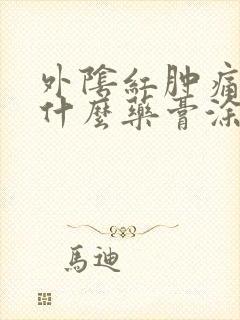 外陰紅肿痛
什麼藥膏涂
馬迪